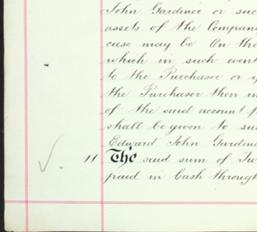 John Gardiner or suc
assets of the Company
case may be On the
which in such event
to the Purchaser or
the Purchaser then in
of the said account
shall be given to su
Edward John Gardine
11 The said sum of
paid in Cash through